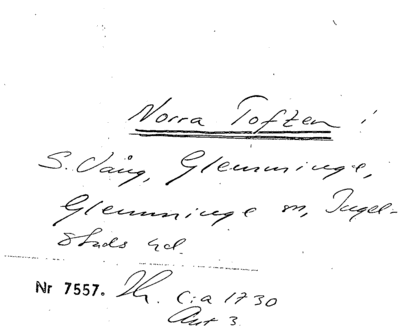 Norra Toften!
S. Vång, Glemminge,
Glemminge sn, Ingel-
stads hd.
Nr 7557. c:a 1730
Ant 3